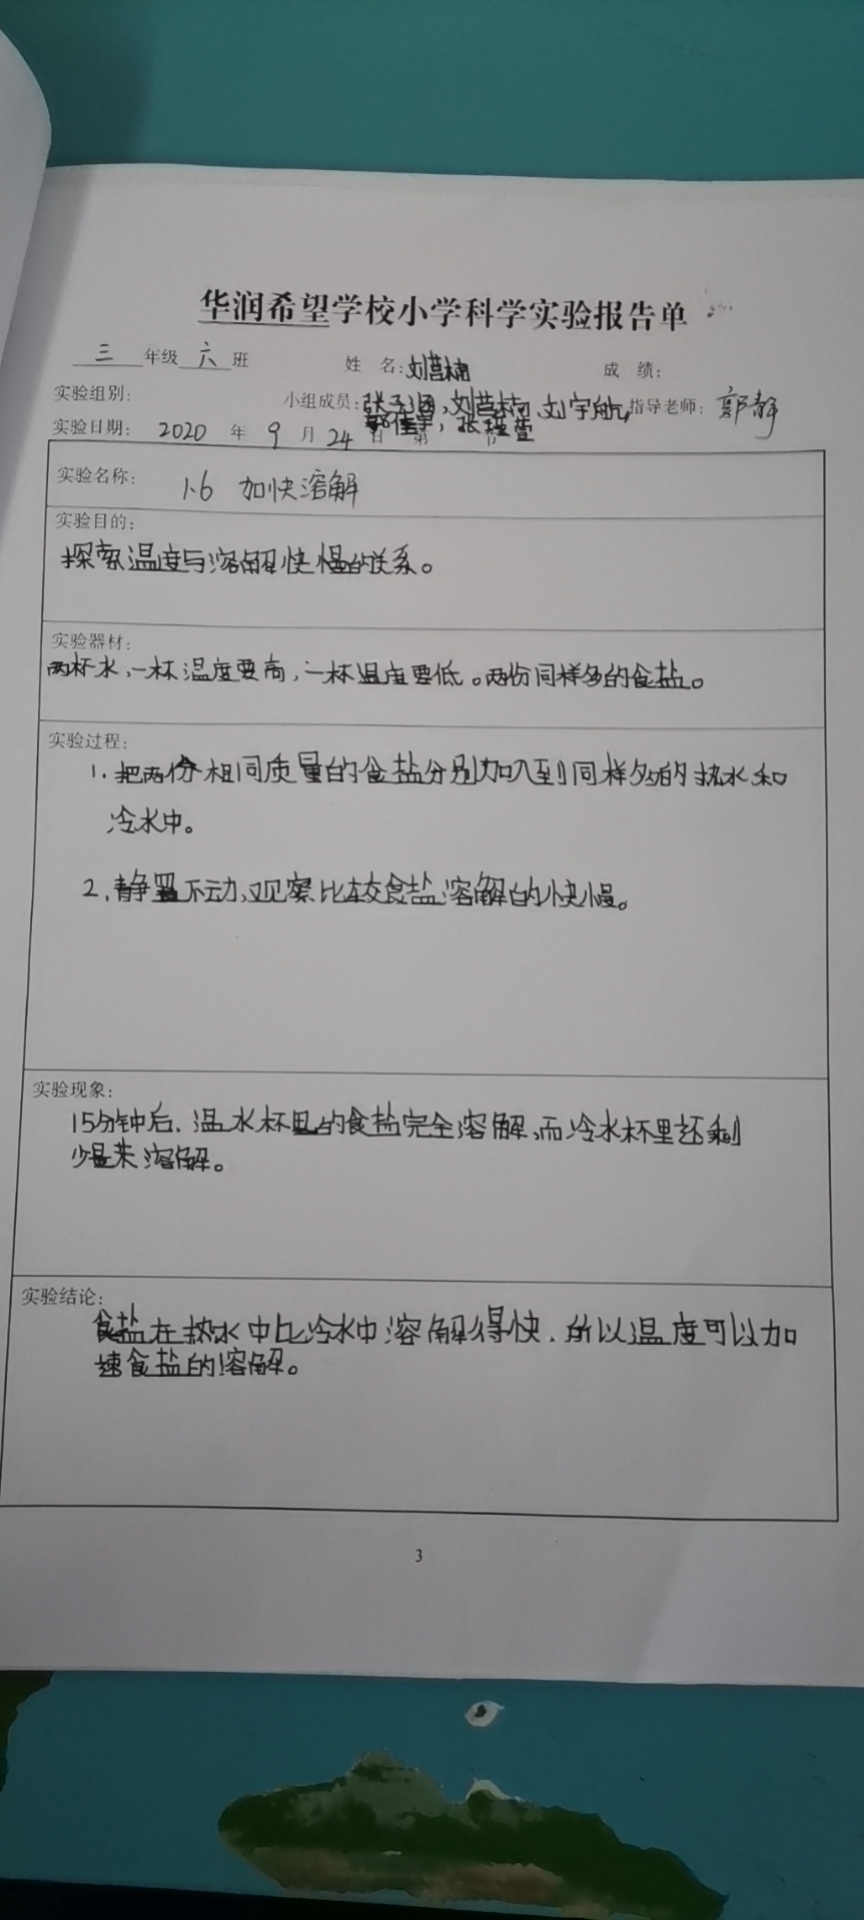 华润希望学校小学科学实验报告单
三年级六班 姓 名: 刘营楠 成 绩:
实验组别: 小组成员: 刘营楠、刘宇航 指导老师: 郭静
郭佳宇,张
实验日期: 2020 年 9 月 24 日 第 节
实验名称: 1.6 加快溶解
实验目的:
探索温度与溶解快慢的关系。
实验器材:
两杯水,一杯温度要高,一杯温度要低。两份同样多的食盐。
实验过程:
1.把两份相同质量的食盐分别加入到同样多的热水和
冷水中。
2.静置不动,观察比较食盐溶解的快慢。
实验现象:
15分钟后,温水杯里的食盐完全溶解,而冷水杯里还剩
少量未溶解。
实验结论:
食盐在热水中比冷水中溶解得快,所以温度可以加
速食盐的溶解。
3